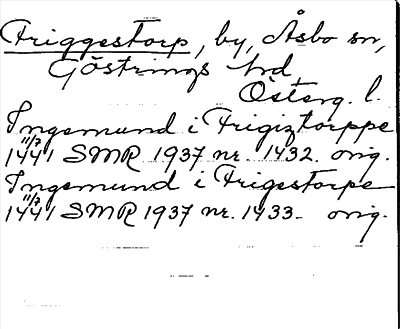 Friggestorp, by, Åsbo sn,
Göstrings hd
Österg. l.
Ingemund i Frigiztorppe
11/7 1441 SMR 1937 nr. 1432. orig.
Ingemund i Frigestorpe
11/7 1441 SMR 1937 nr. 1433. orig.